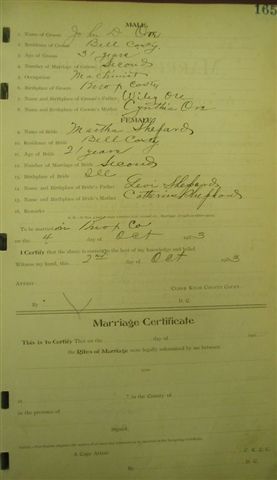 165
MALE.
1. Name of Groom John D Orr
2. Residence of Groom Bell County
3. Age of Groom 31 years
4. Number of Marriage of Groom Second
5. Occupation Machinist
6. Birthplace of Groom Knox County
7. Name and Birthplace of Groom's Father Wiley Orr
8. Name and Birthplace of Groom's Mother Cynthia Orr
FEMALE.
9. Name of Bride Martha Shepard
10. Residence of Bride Bell County
11. Age of Bride 21 years
12. Number of Marriage of Bride Second
13. Birthplace of Bride Ill
14. Name and Birthplace of Bride's Father Levi Shephard
15. Name and Birthplace of Bride's Mother Catherine Shephard
16. Remarks
To be married in Knox Co
on the 4 day of Oct 1903
I Certify that the above is correct to the best of my knowledge and belief.
Witness my hand, this 2nd day of Oct 1903
Attest:
Clerk Knox County Court.
By D. C.
Marriage Certificate
This is to Certify That on the day of
the Rites of Marriage were legally solemnized by me between
and
at in the County of
in the presence of
Signed,
A Copy Attest
By D. C.